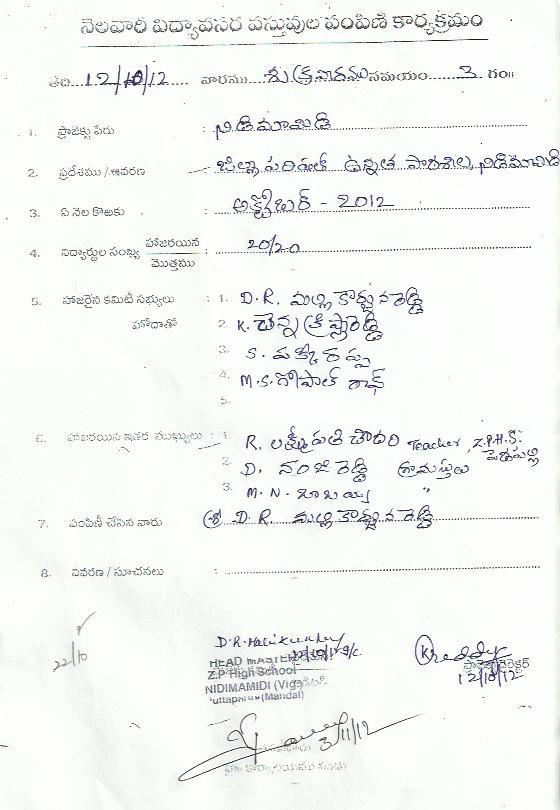 నెలవారి విద్యావసర వస్తువుల పంపిణి కార్యక్రమం
తేది 12/10/12 వారము శుక్రవారము సమయం 3 గం॥
1. ప్రాజెక్టు పేరు : నిడిమామిడి
2. ప్రదేశము / ఆవరణ : జిల్లా పరిషత్ ఉన్నత పాఠశాల, నిడిమామిడి
3. ఏ నెల కొఱకు : అక్టోబర్ - 2012
4. విద్యార్థుల సంఖ్య హాజరయిన / మొత్తము : 20/20
5. హాజరైన కమిటీ సభ్యులు : 1. D.R. మల్లికార్జునరెడ్డి
హోదాతో 2. K. చెన్నక్రిష్ణారెడ్డి
3. S. పక్కీరప్ప
4. M.S. గోపాల్ రావ్
5.
6. హాజరయిన ఇతర ముఖ్యులు : 1. R. లక్ష్మీపతి చౌదరి Teacher, Z.P.H.S.
పెడపల్లి
2. D. నంజిరెడ్డి గ్రామస్తులు
3. M.N. బాబయ్య "
7. పంపిణీ చేసిన వారు : శ్రీ D.R. మల్లికార్జునరెడ్డి
8. వివరణ / సూచనలు :
22/10
HEAD MASTER
Z.P High School
NIDIMAMIDI (Vig)
uttaparthi (Mandal)
KReddy
ప్రాజెక్టు డైరెక్టర్
12/10/12
3/11/12